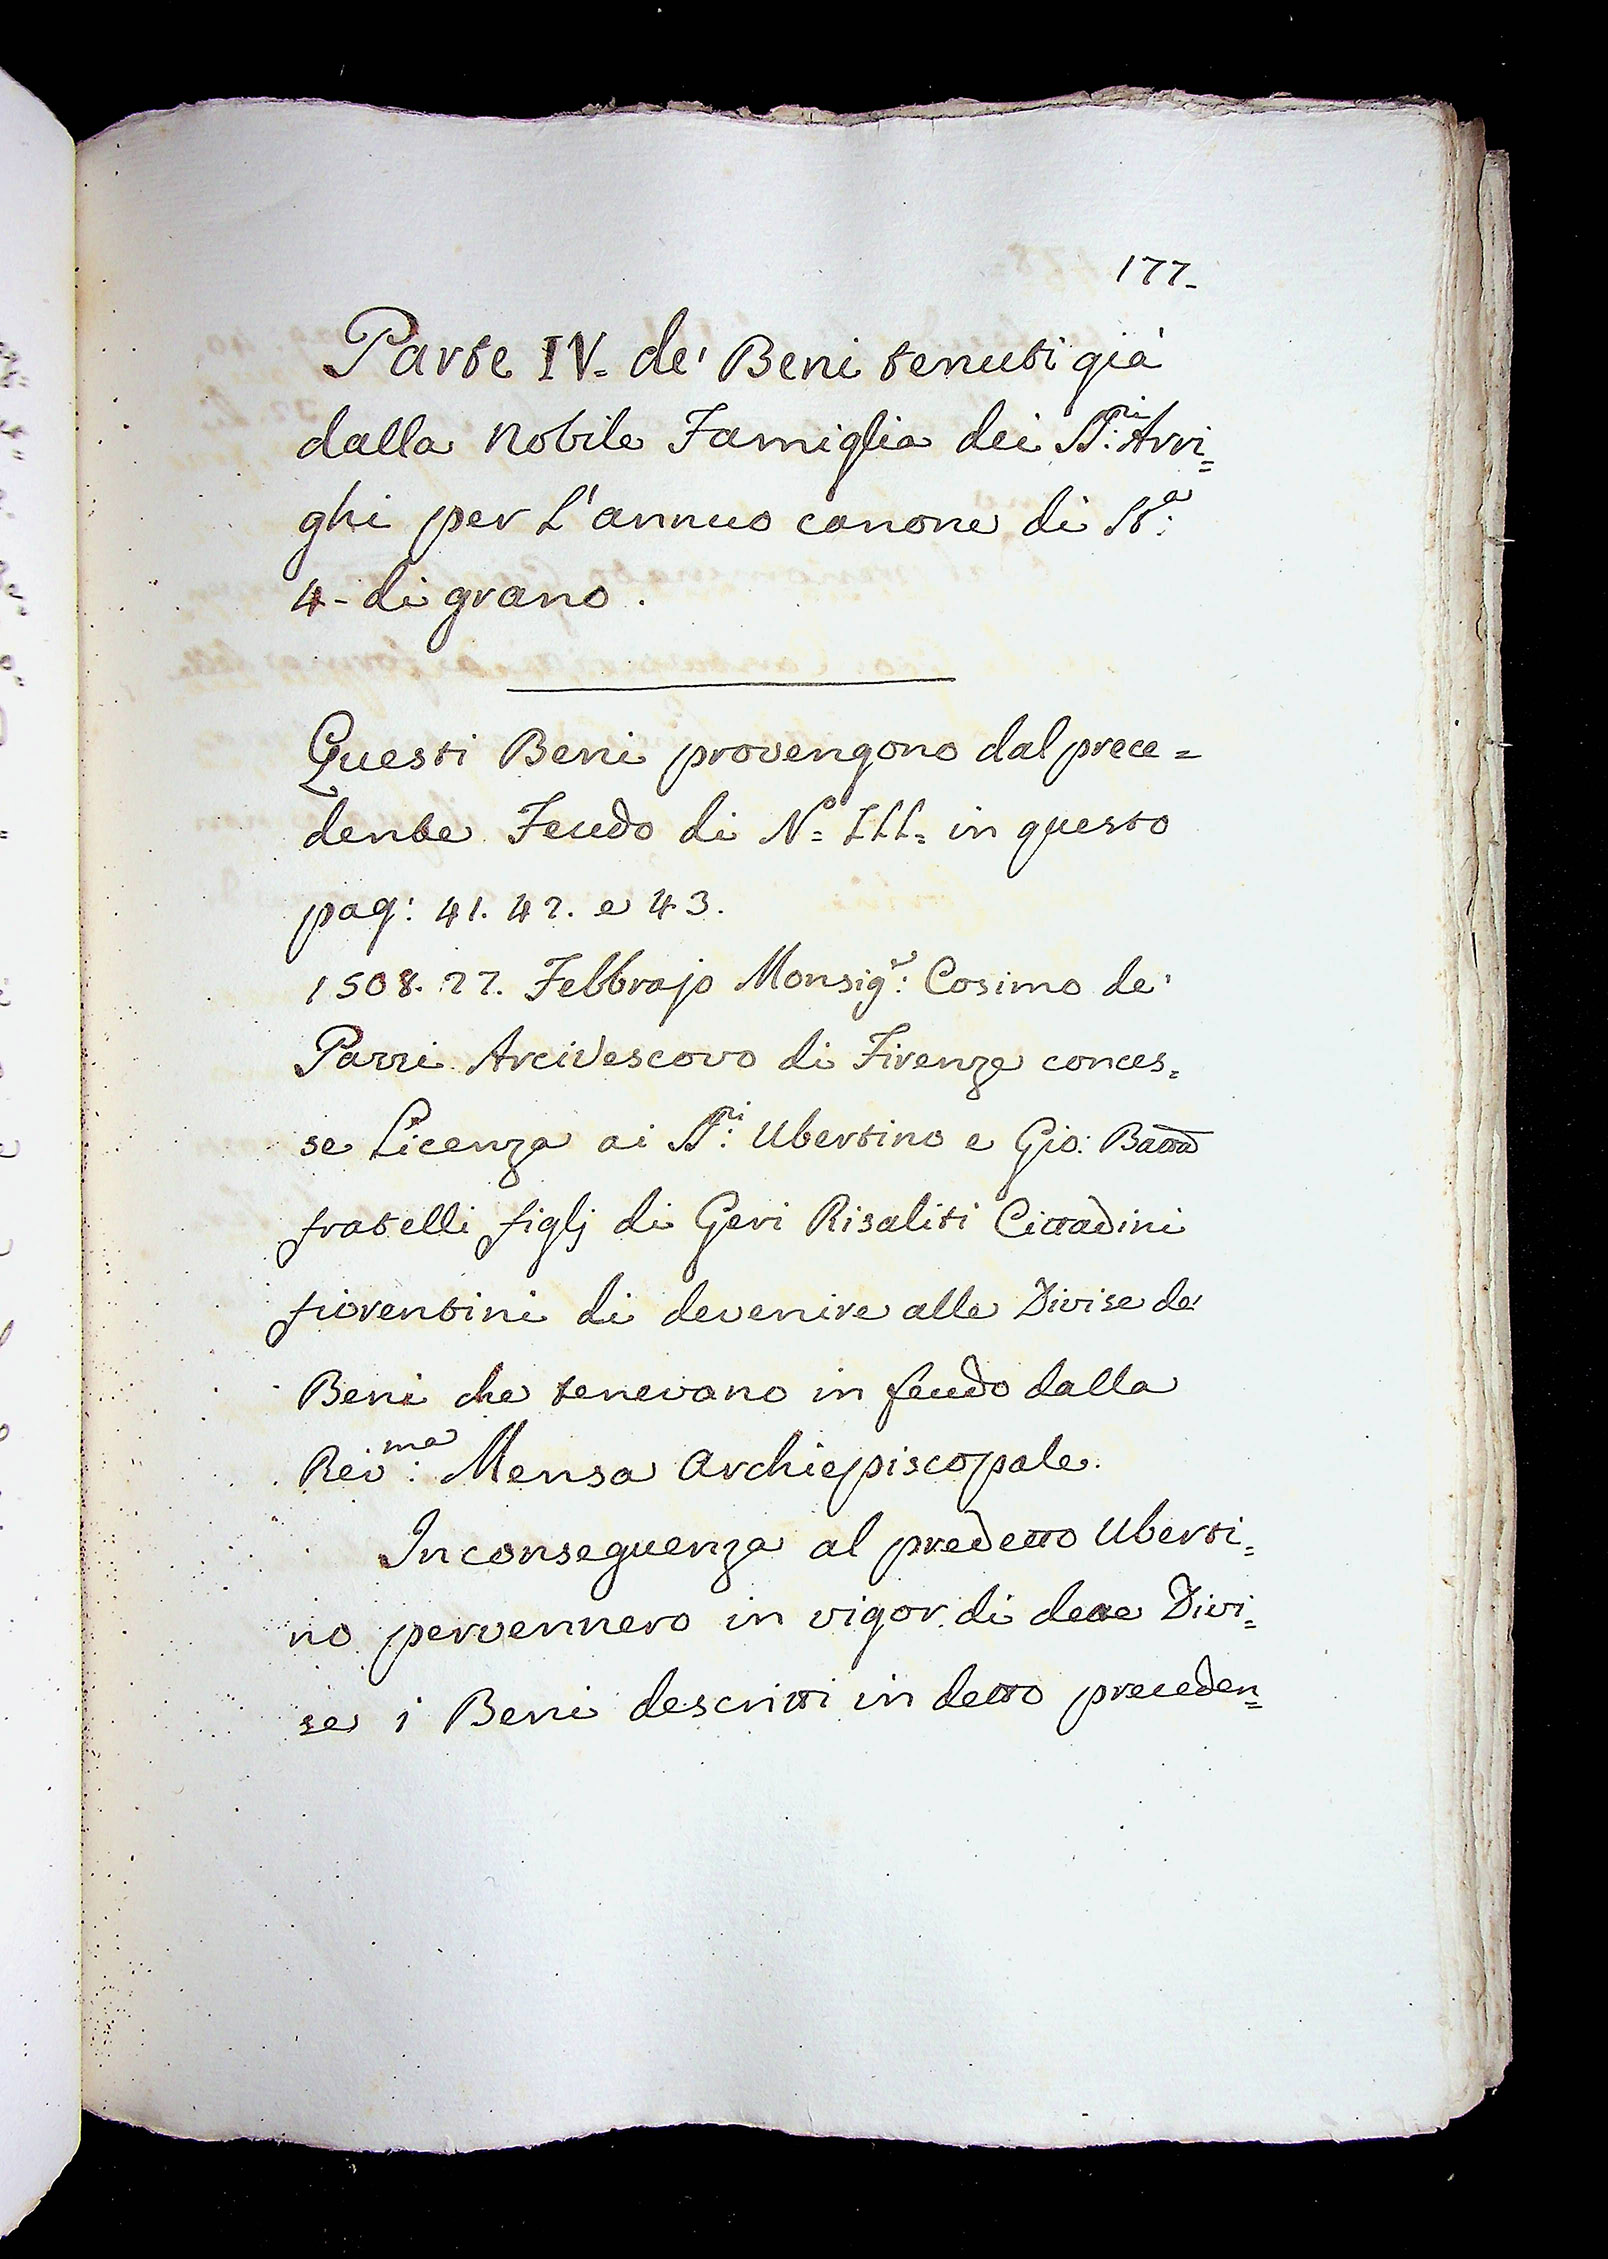 177-
Parte IV. de' Beni tenuti già
dalla Nobile Famiglia dei SS.ri Arri=
ghi per L'annuo canone di St.a
4- di grano.
Questi Beni provengono dal prece=
dente Feudo di N.o III. in questo
pag: 41. 42. e 43.
1508. 27. Febbrajo Monsig.r: Cosimo de'
Pazzi Arcivescovo di Firenze conces=
se Licenza ai SS.ri: Ubertino e Gio: Batta
fratelli figlj di Geri Risaliti Cittadini
fiorentini di devenire alle Divise de'
Beni che tenevano in feudo dalla
Rev.ma: Mensa Archiepiscopale.
In conseguenza al predetto Uberti=
no pervennero in vigor di dette Divi=
se i Beni descritti in detto preceden=